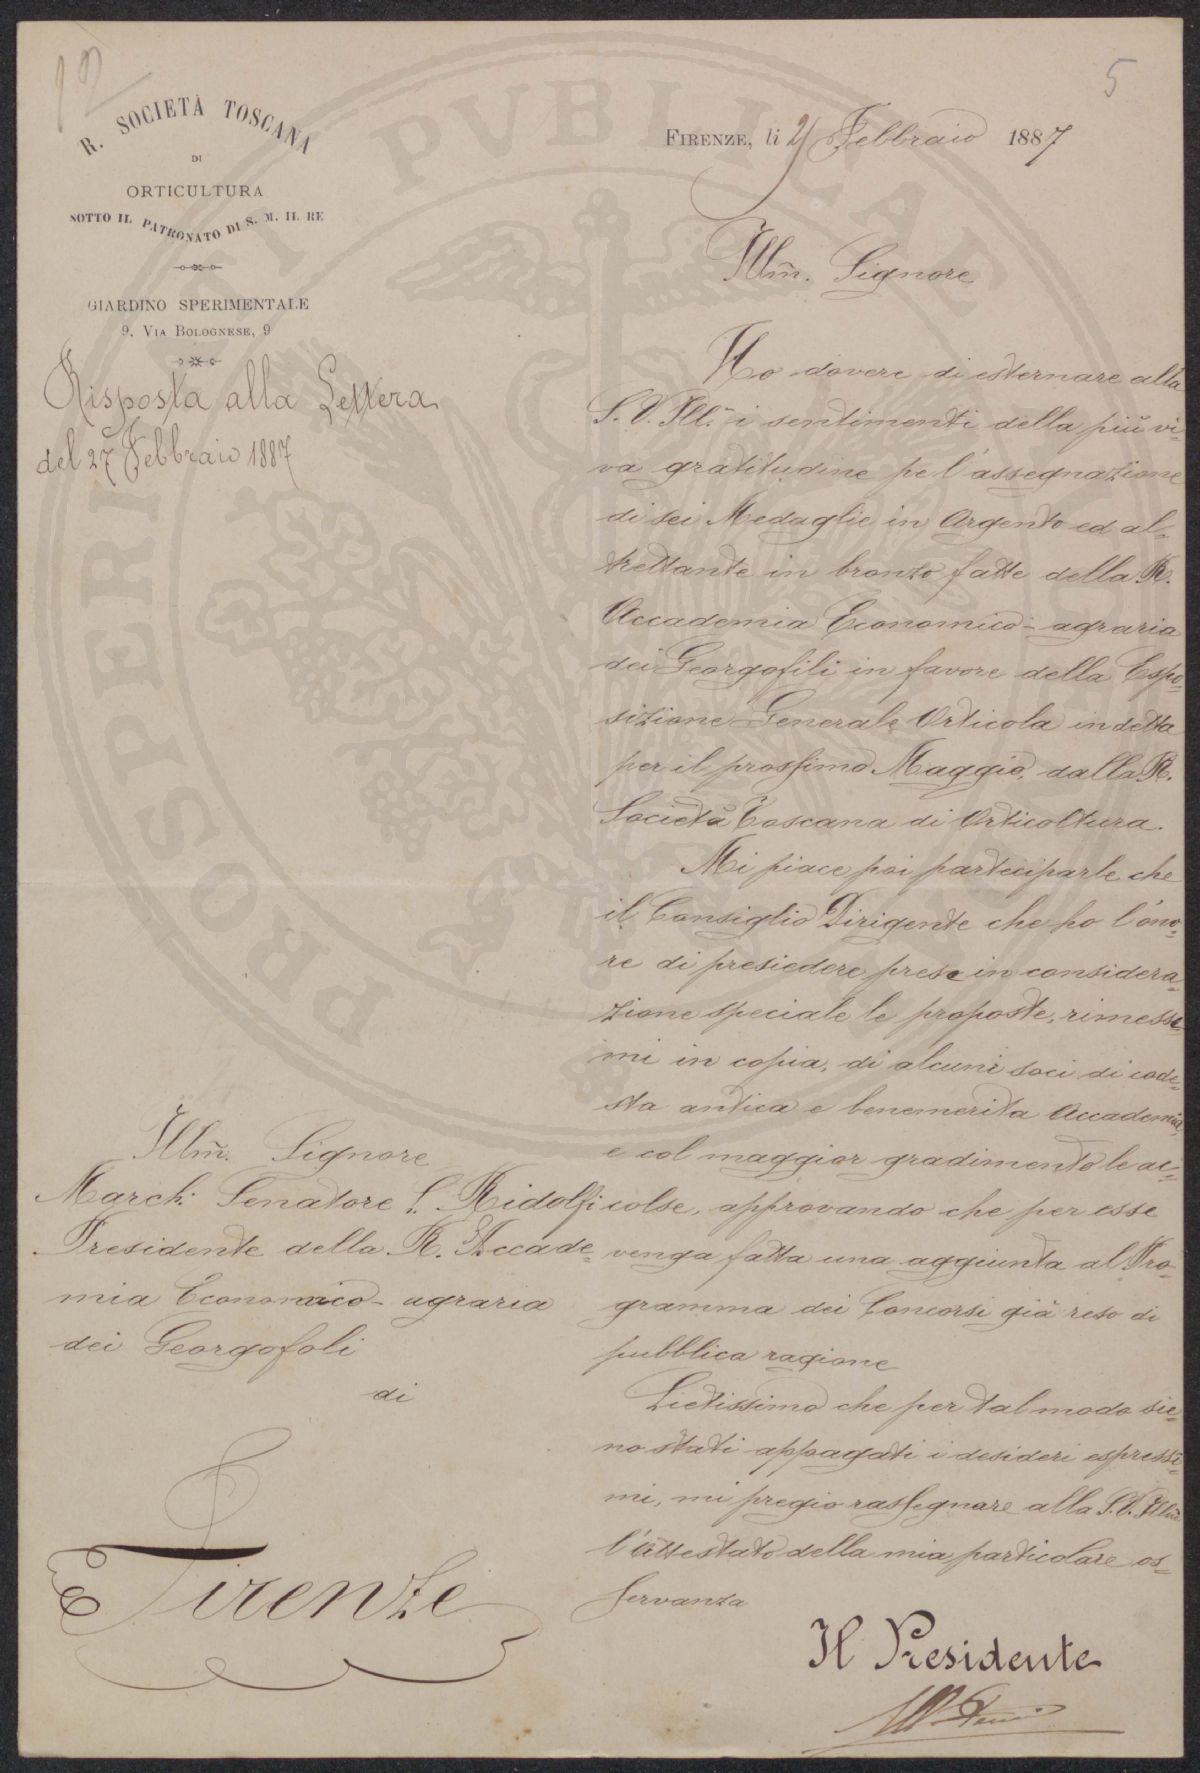 12
5
R. SOCIETÀ TOSCANA
DI
ORTICULTURA
SOTTO IL PATRONATO DI S. M. IL RE
GIARDINO SPERIMENTALE
9, VIA BOLOGNESE, 9
FIRENZE, li Febbraio 1887
Risposta alla Lettera
del 27 Febbraio 1887
Illm̃. Signore
Ho dovere di esternare alla
S. V. Ill.ª i sentimenti della più vi-
va gratitudine pe l'assegnazione
di sei Medaglie in Argento ed al-
trettante in bronzo fatte della R.
Accademia Economico-agraria
dei Georgofili in favore della Espo-
sizione Generale Orticola indetta
per il prossimo Maggio, dalla R.
Società Toscana di Orticoltura.
Mi piace poi parteciparle che
il Consiglio Dirigente che ho l'ono-
re di presiedere prese in considera-
zione speciale le proposte, rimesse-
mi in copia, di alcuni soci di code-
sta antica e benemerita Accademia,
e col maggior gradimento le ac-
colse, approvando che per esse
venga fatta una aggiunta al Pro-
gramma dei Concorsi già reso di
pubblica ragione
Lietissimo che per tal modo sie-
no stati appagati i desideri espressi-
mi, mi pregio rassegnare alla S. V. Illm̃a
l'attestato della mia particolare os-
servanza
Il Presidente
Illm̃. Signore
March. Senatore L. Ridolfi
Presidente della R. Accade-
mia Economico-agraria
dei Georgofoli
di
Firenze
PROSPERITATI PVBLICAE